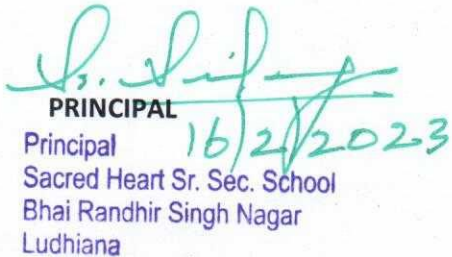 PRINCIPAL
16/2/2023
Principal
Sacred Heart Sr. Sec. School
Bhai Randhir Singh Nagar
Ludhiana